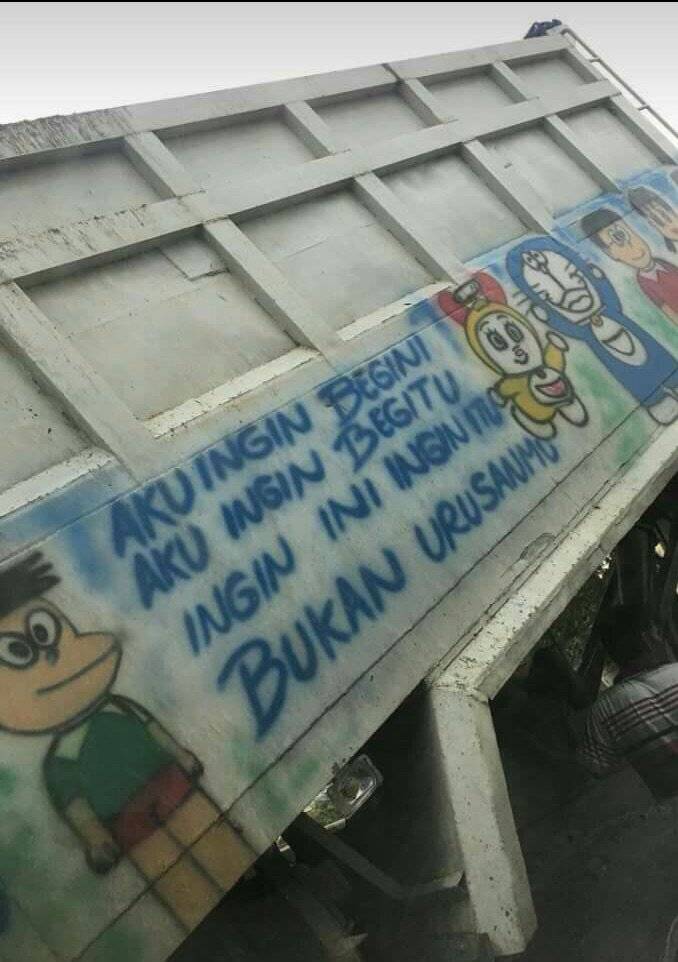 AKU INGIN BEGINI
AKU INGIN BEGITU
INGIN INI INGIN ITU
BUKAN URUSANMU